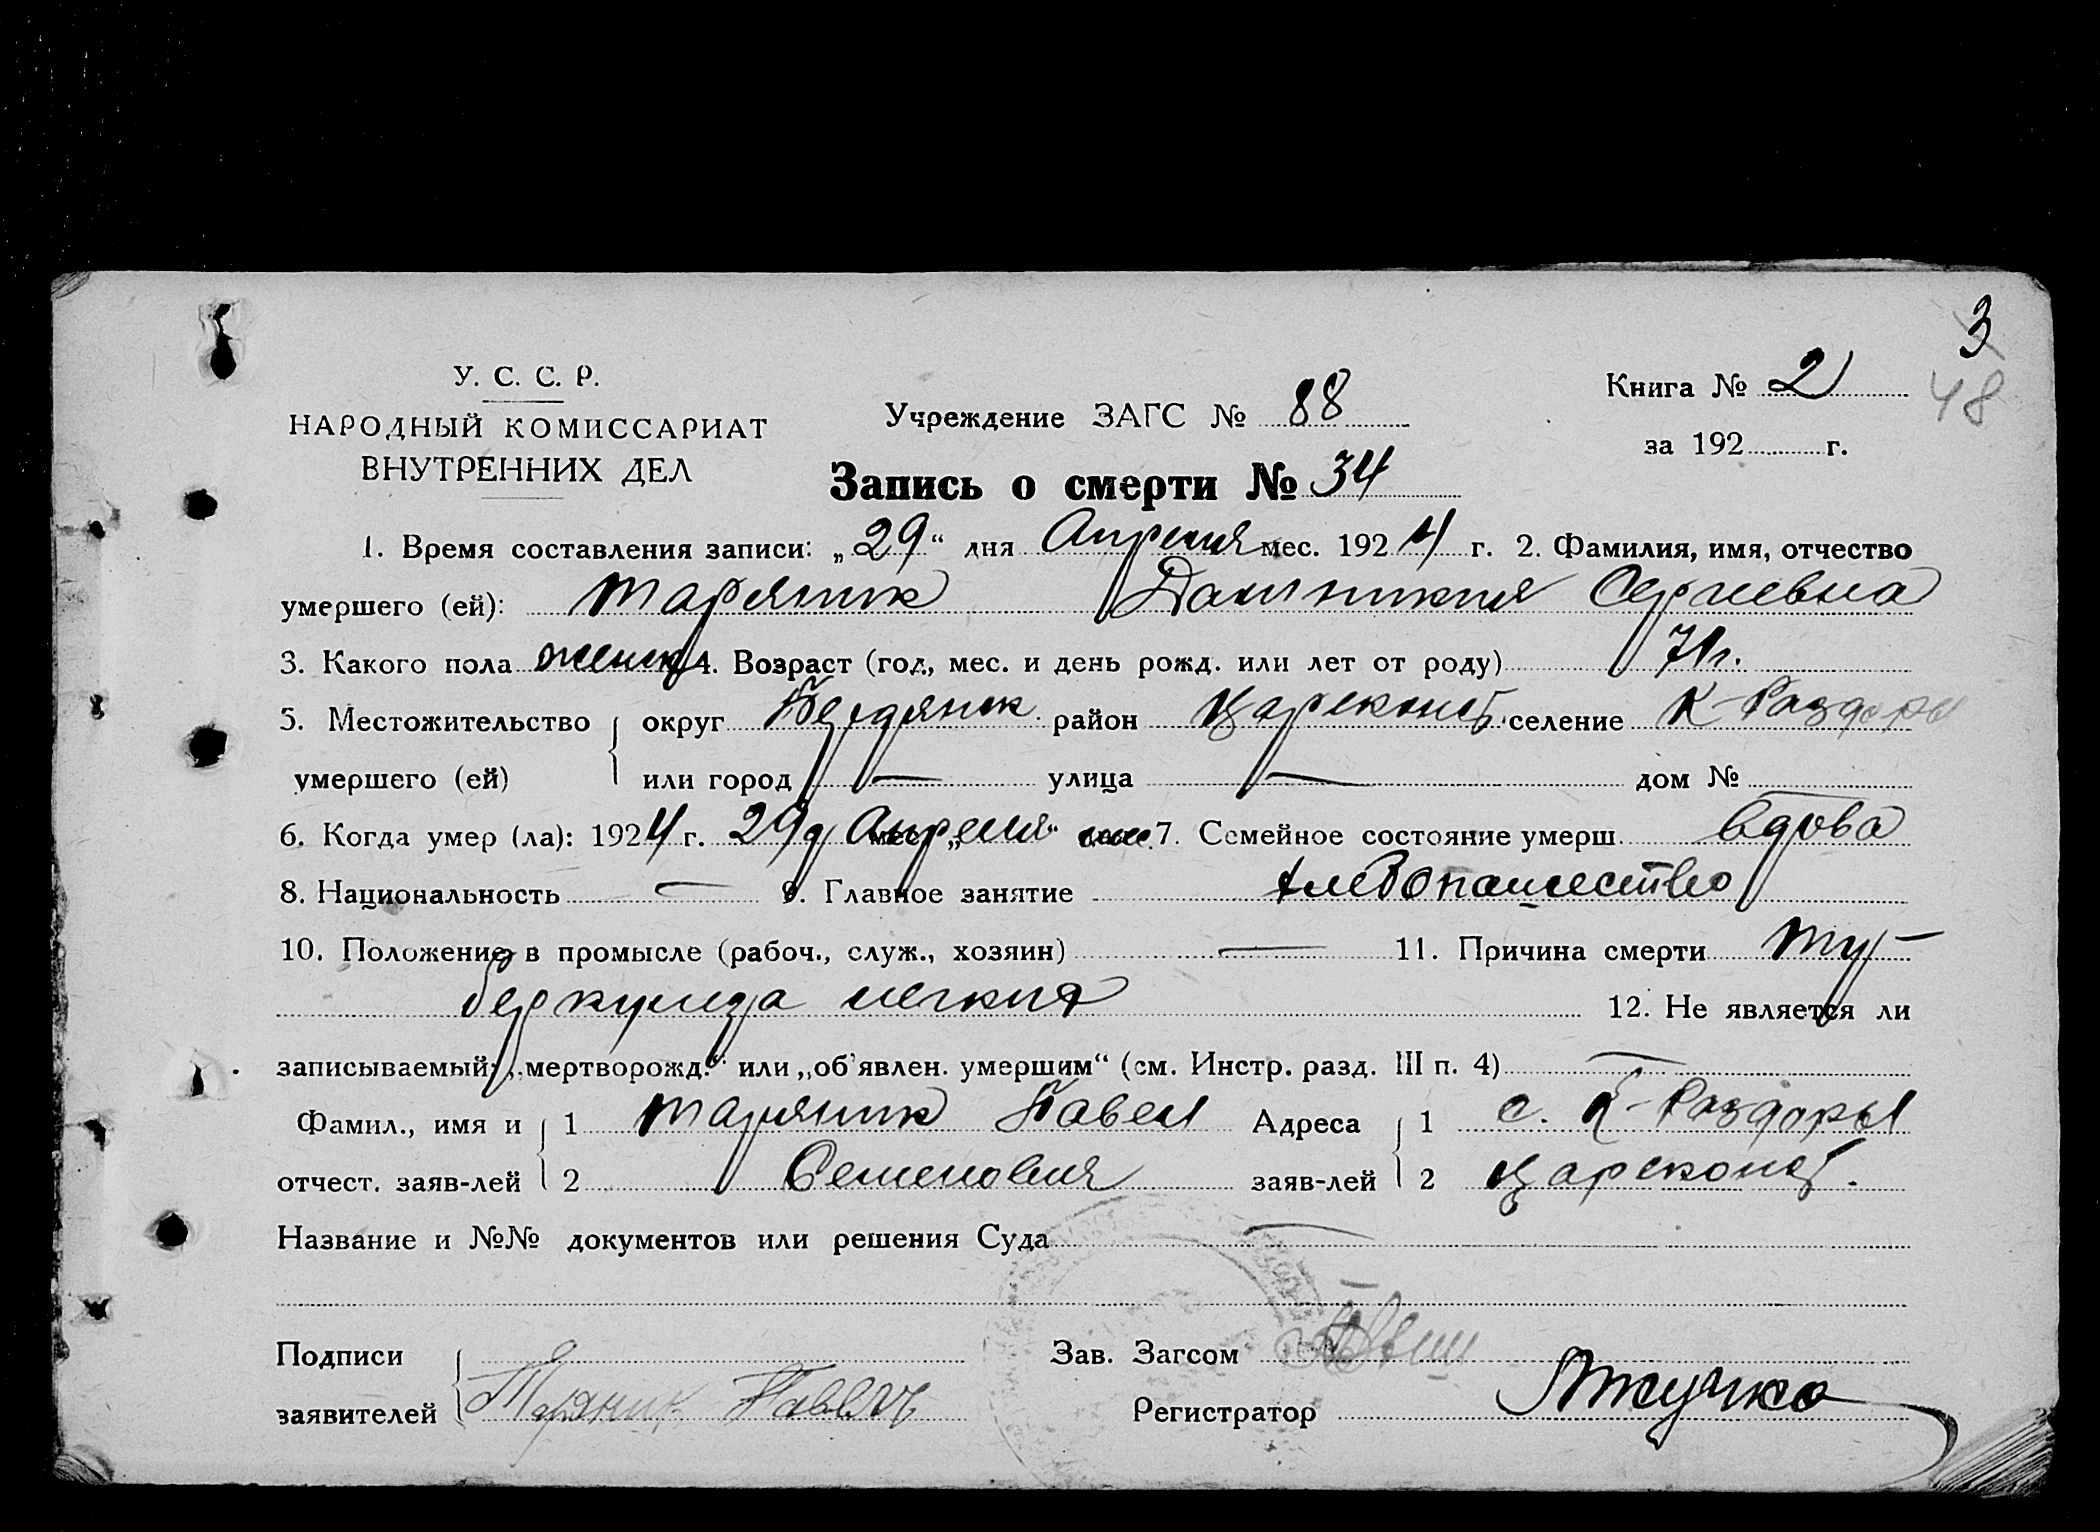 3
У. С. С. Р.
Книга № 2
48
НАРОДНЫЙ КОМИССАРИАТ
Учреждение ЗАГС № 88
за 192 г.
ВНУТРЕННИХ ДЕЛ
Запись о смерти № 34
1. Время составления записи: „29“ дня Апреля мес. 1924 г. 2. Фамилия, имя, отчество
умершего (ей): Таряник Домникия Сергиевна
3. Какого пола женск 4. Возраст (год, мес. и день рожд. или лет от роду) 71 г.
5. Местожительство округ Бердянск. район Цареконст. селение К-Раздоры
умершего (ей) или город — улица — дом № —
6. Когда умер (ла): 1924 г. 29 д Апреля 7. Семейное состояние умерш. Вдова
8. Национальность — 9. Главное занятие хлебопашество
10. Положение в промысле (рабоч., служ., хозяин) — 11. Причина смерти Ту-
беркулеза легких 12. Не является ли
записываемый: „мертворожд.“ или „об'явлен. умершим“ (см. Инстр. разд. III п. 4) —
Фамил., имя и 1 Таряник Павел Адреса 1 с. К-Раздоры
отчест. заяв-лей 2 Семенович заяв-лей 2 Цареконст.
Название и №№ документов или решения Суда —
Подписи Зав. Загсом
заявителей Таряник Павел Регистратор